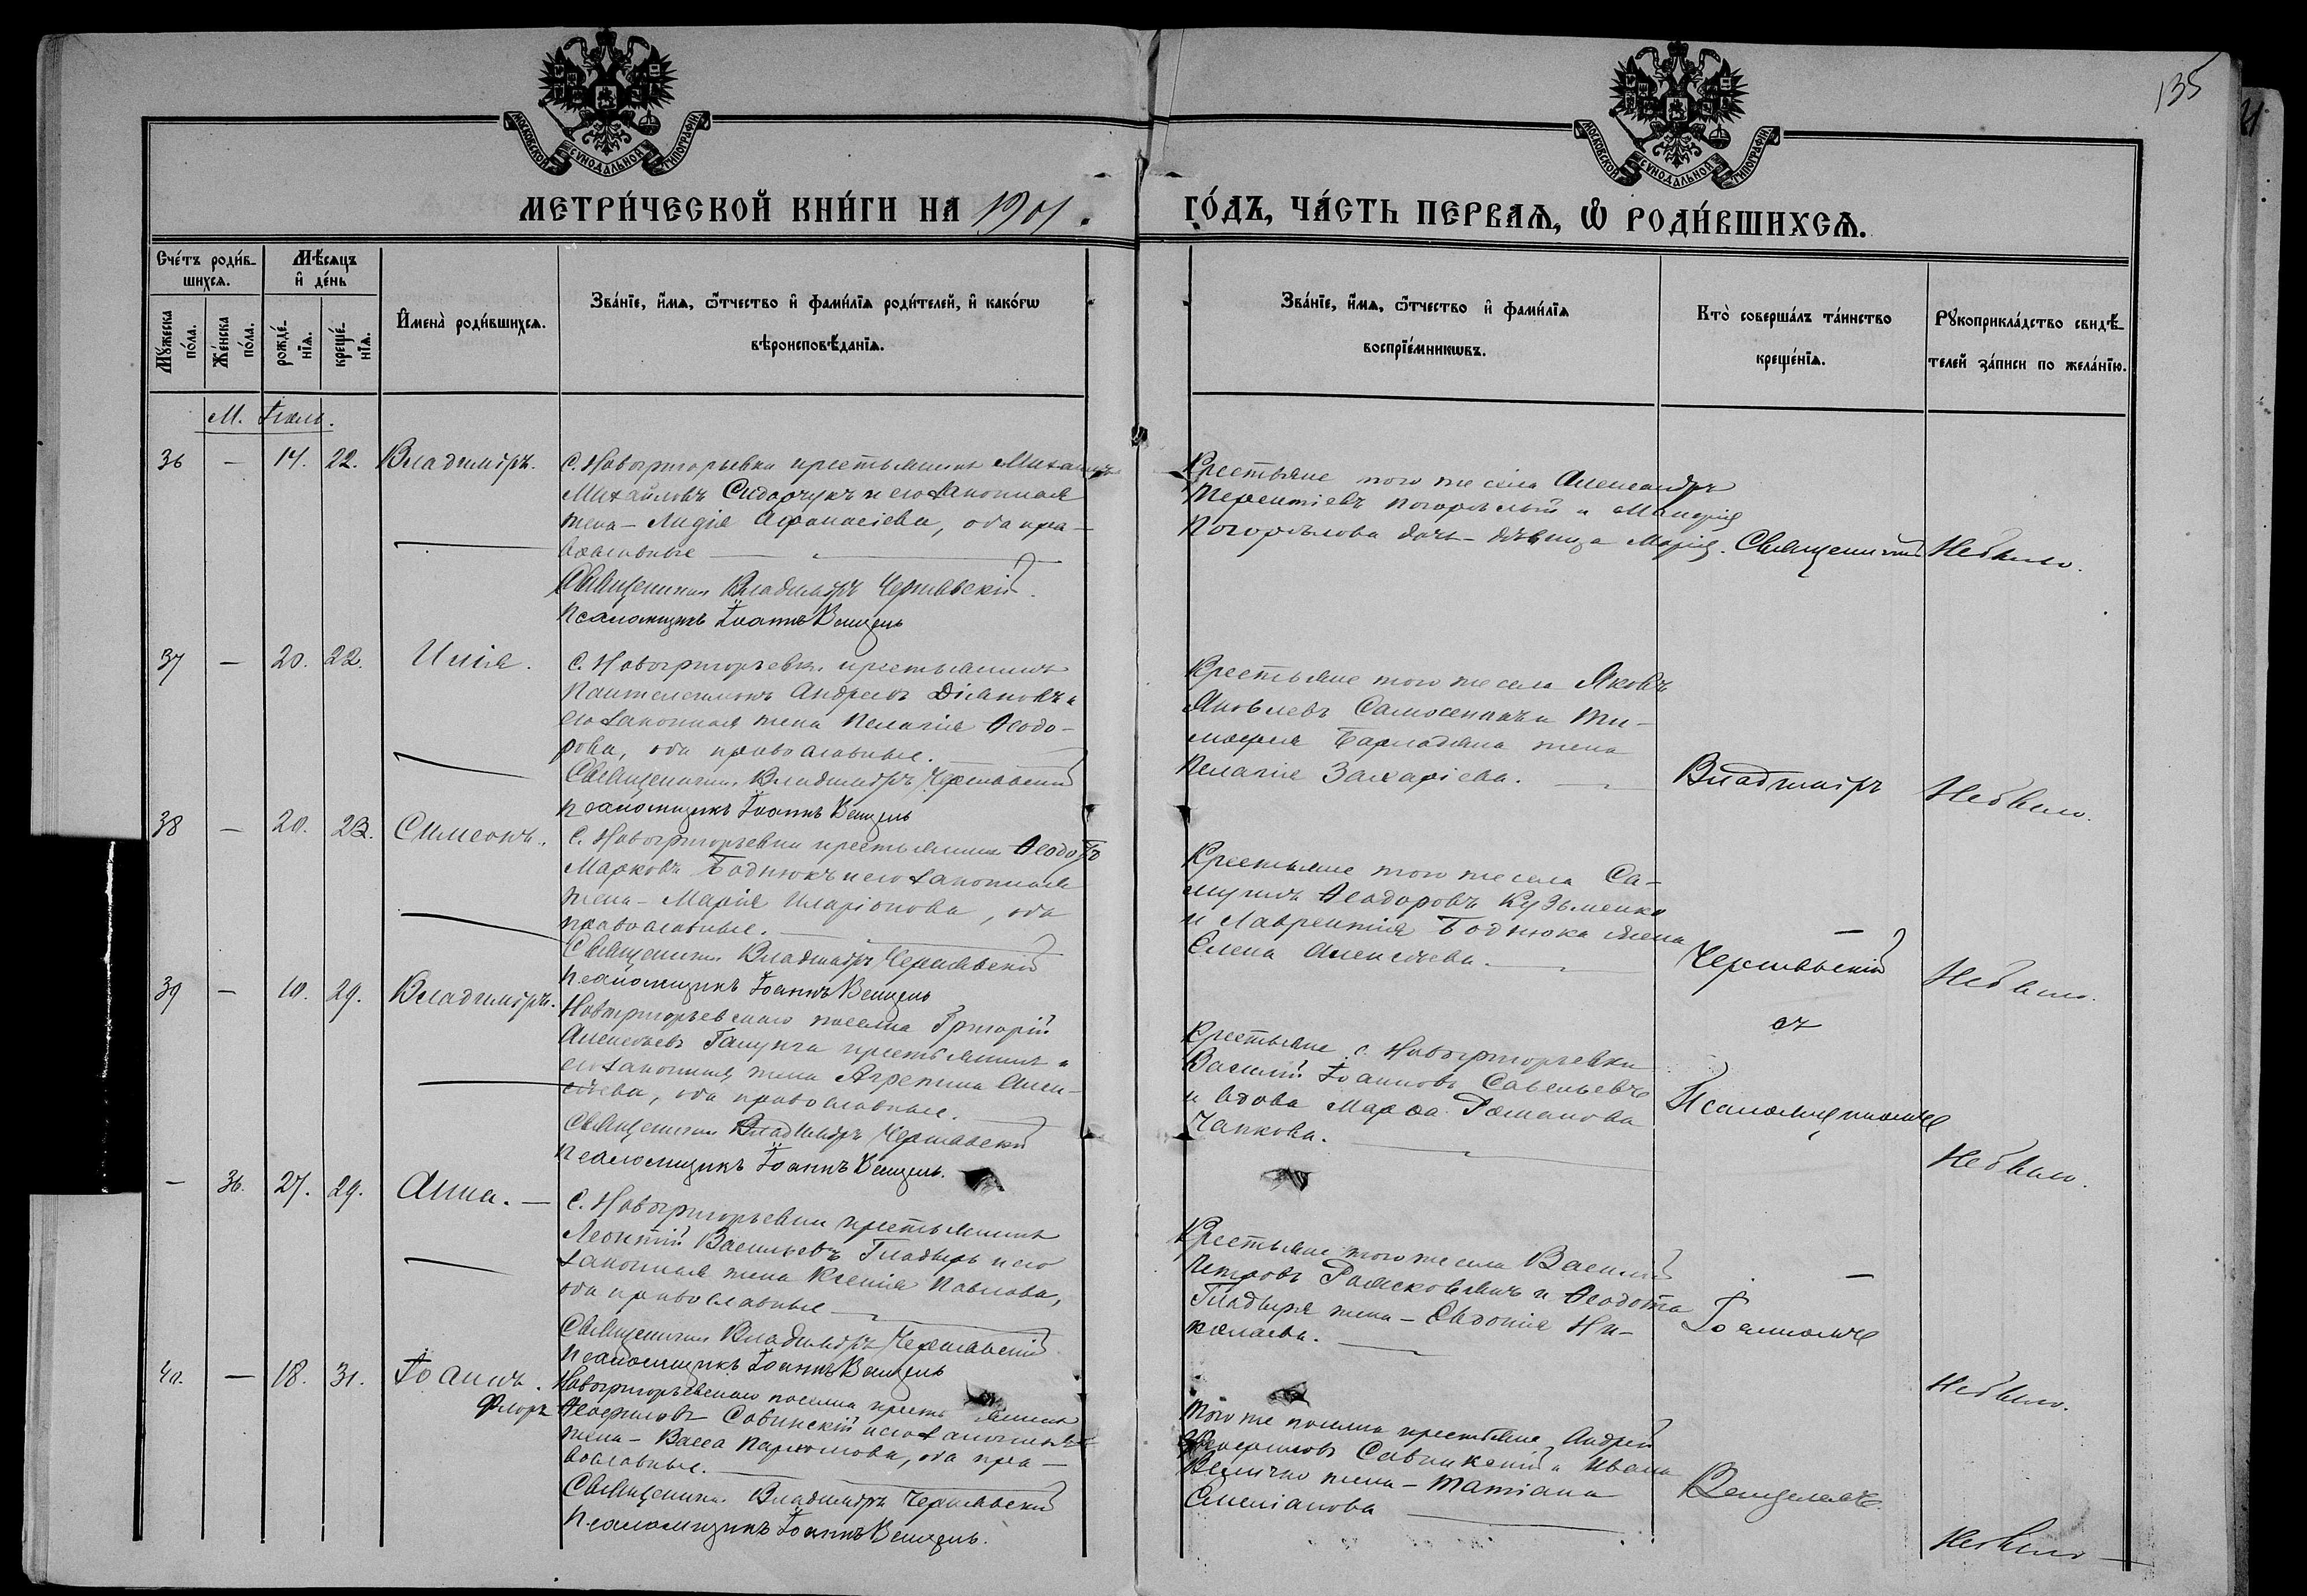 135
МОСКОВСКОЙ СУНОДАЛЬНОЙ ТИПОГРАФІИ
МОСКОВСКОЙ СУНОДАЛЬНОЙ ТИПОГРАФІИ
МЕТРИ́ЧЕСКОЙ КНИ́ГИ НА 1901.
ГО́ДЪ, ЧА́СТЬ ПЕ́РВАѦ, Ѡ РОДИ́ВШИХСѦ.
Сче́тъ роди́в-
шихсѧ.
Мѣ́сѧцъ
и де́нь
Мꙋ́жеска
по́ла.
Же́нска
по́ла.
рожде́-
нїѧ.
креще́-
нїѧ.
И҆мена̀ роди́вшихсѧ.
Зва́нїе, и҆́мѧ, ѻ҆́тчество и҆ фами́лїѧ роди́телей, и҆ како́гѡ
вѣроисповѣ́данїѧ.
Зва́нїе, и҆́мѧ, ѻ҆́тчество и҆ фами́лїѧ
воспрїе́мникѡвъ.
Кто̀ соверша́лъ та́инство
креще́нїѧ.
Рꙋкоприкла́дство свидѣ́-
телей за́писи по жела́нїю.
М. Іюль.
36 — 14. 22. Владиміръ.
С. Новогригорьевки крестьянинъ Михаилъ
Михайловъ Сидорчукъ и его законная
жена – Лидія Афанасіева, оба пра-
вославные
Священникъ Владиміръ Чернявскій
Псаломщикъ Іоаннъ Венцель
Крестьяне того же села Александръ
Терентіевъ Погорѣлый и
Погорѣлова дочь – дѣвица Марія.
Священникъ
Не было.
37 — 20. 22. Илія.
С. Новогригорьевки крестьянинъ
Пантелеимонъ Андреевъ Діяновъ и
его законная жена Пелагія Ѳеодо-
рова, оба православные.
Священникъ Владиміръ Чернявскій
Псаломщикъ Іоаннъ Венцель
Крестьяне того же села Яковъ
Яковлевъ и Ти-
моѳея жена
Пелагія Захаріева.
Владиміръ
Не было.
38 — 20. 22. Симеонъ.
С. Новогригорьевки крестьянинъ Ѳеодотъ
Марковъ Боднюкъ и его законная
жена – Марія Иларіонова, оба
православные.
Священникъ Владиміръ Чернявскій
Псаломщикъ Іоаннъ Венцель
Крестьяне того же села Са-
муилъ Ѳеодоровъ Кузьменко
и Лаврентія Боднюка жена
Елена Алексѣева.
Чернявскій
Не было.
39 — 10. 29. Владиміръ.
Новогригорьевскаго поселка Григорій
Алексѣевъ крестьянинъ и
его законная жена Агрепина Алек-
сѣева, оба православные.
Священникъ Владиміръ Чернявскій
Псаломщикъ Іоаннъ Венцель.
съ
Крестьяне с. Новогригорьевки
Василій Іоанновъ Савельевъ
и вдова Марѳа Романова
Чапкова.
Псаломщикомъ
Не было.
— 36. 27. 29. Анна. —
С. Новогригорьевки крестьянинъ
Леонтій Васильевъ Гладырь и его
законная жена Ксенія Павлова,
оба православные
Священникъ Владиміръ Чернявскій
Псаломщикъ Іоаннъ Венцель
Крестьяне того же села Василій
Петровъ и Ѳеодота
Гладыря жена – Евдокія Ни-
колаева.
Іоанномъ
Не было.
40. — 18. 31. Іоаннъ.
Флоръ
Новогригорьевскаго поселка крестьянинъ
Ѳеофиловъ Савинскій и его законная
жена – Васса Парѳеліова, оба пра-
вославные.
Священникъ Владиміръ Чернявскій
Псаломщикъ Іоаннъ Венцель.
Того же поселка крестьяне Андрей
Ѳеофиловъ Савинскій и Ивана
Величко жена – Татіана
Емеліанова
Венцелемъ.
Не было